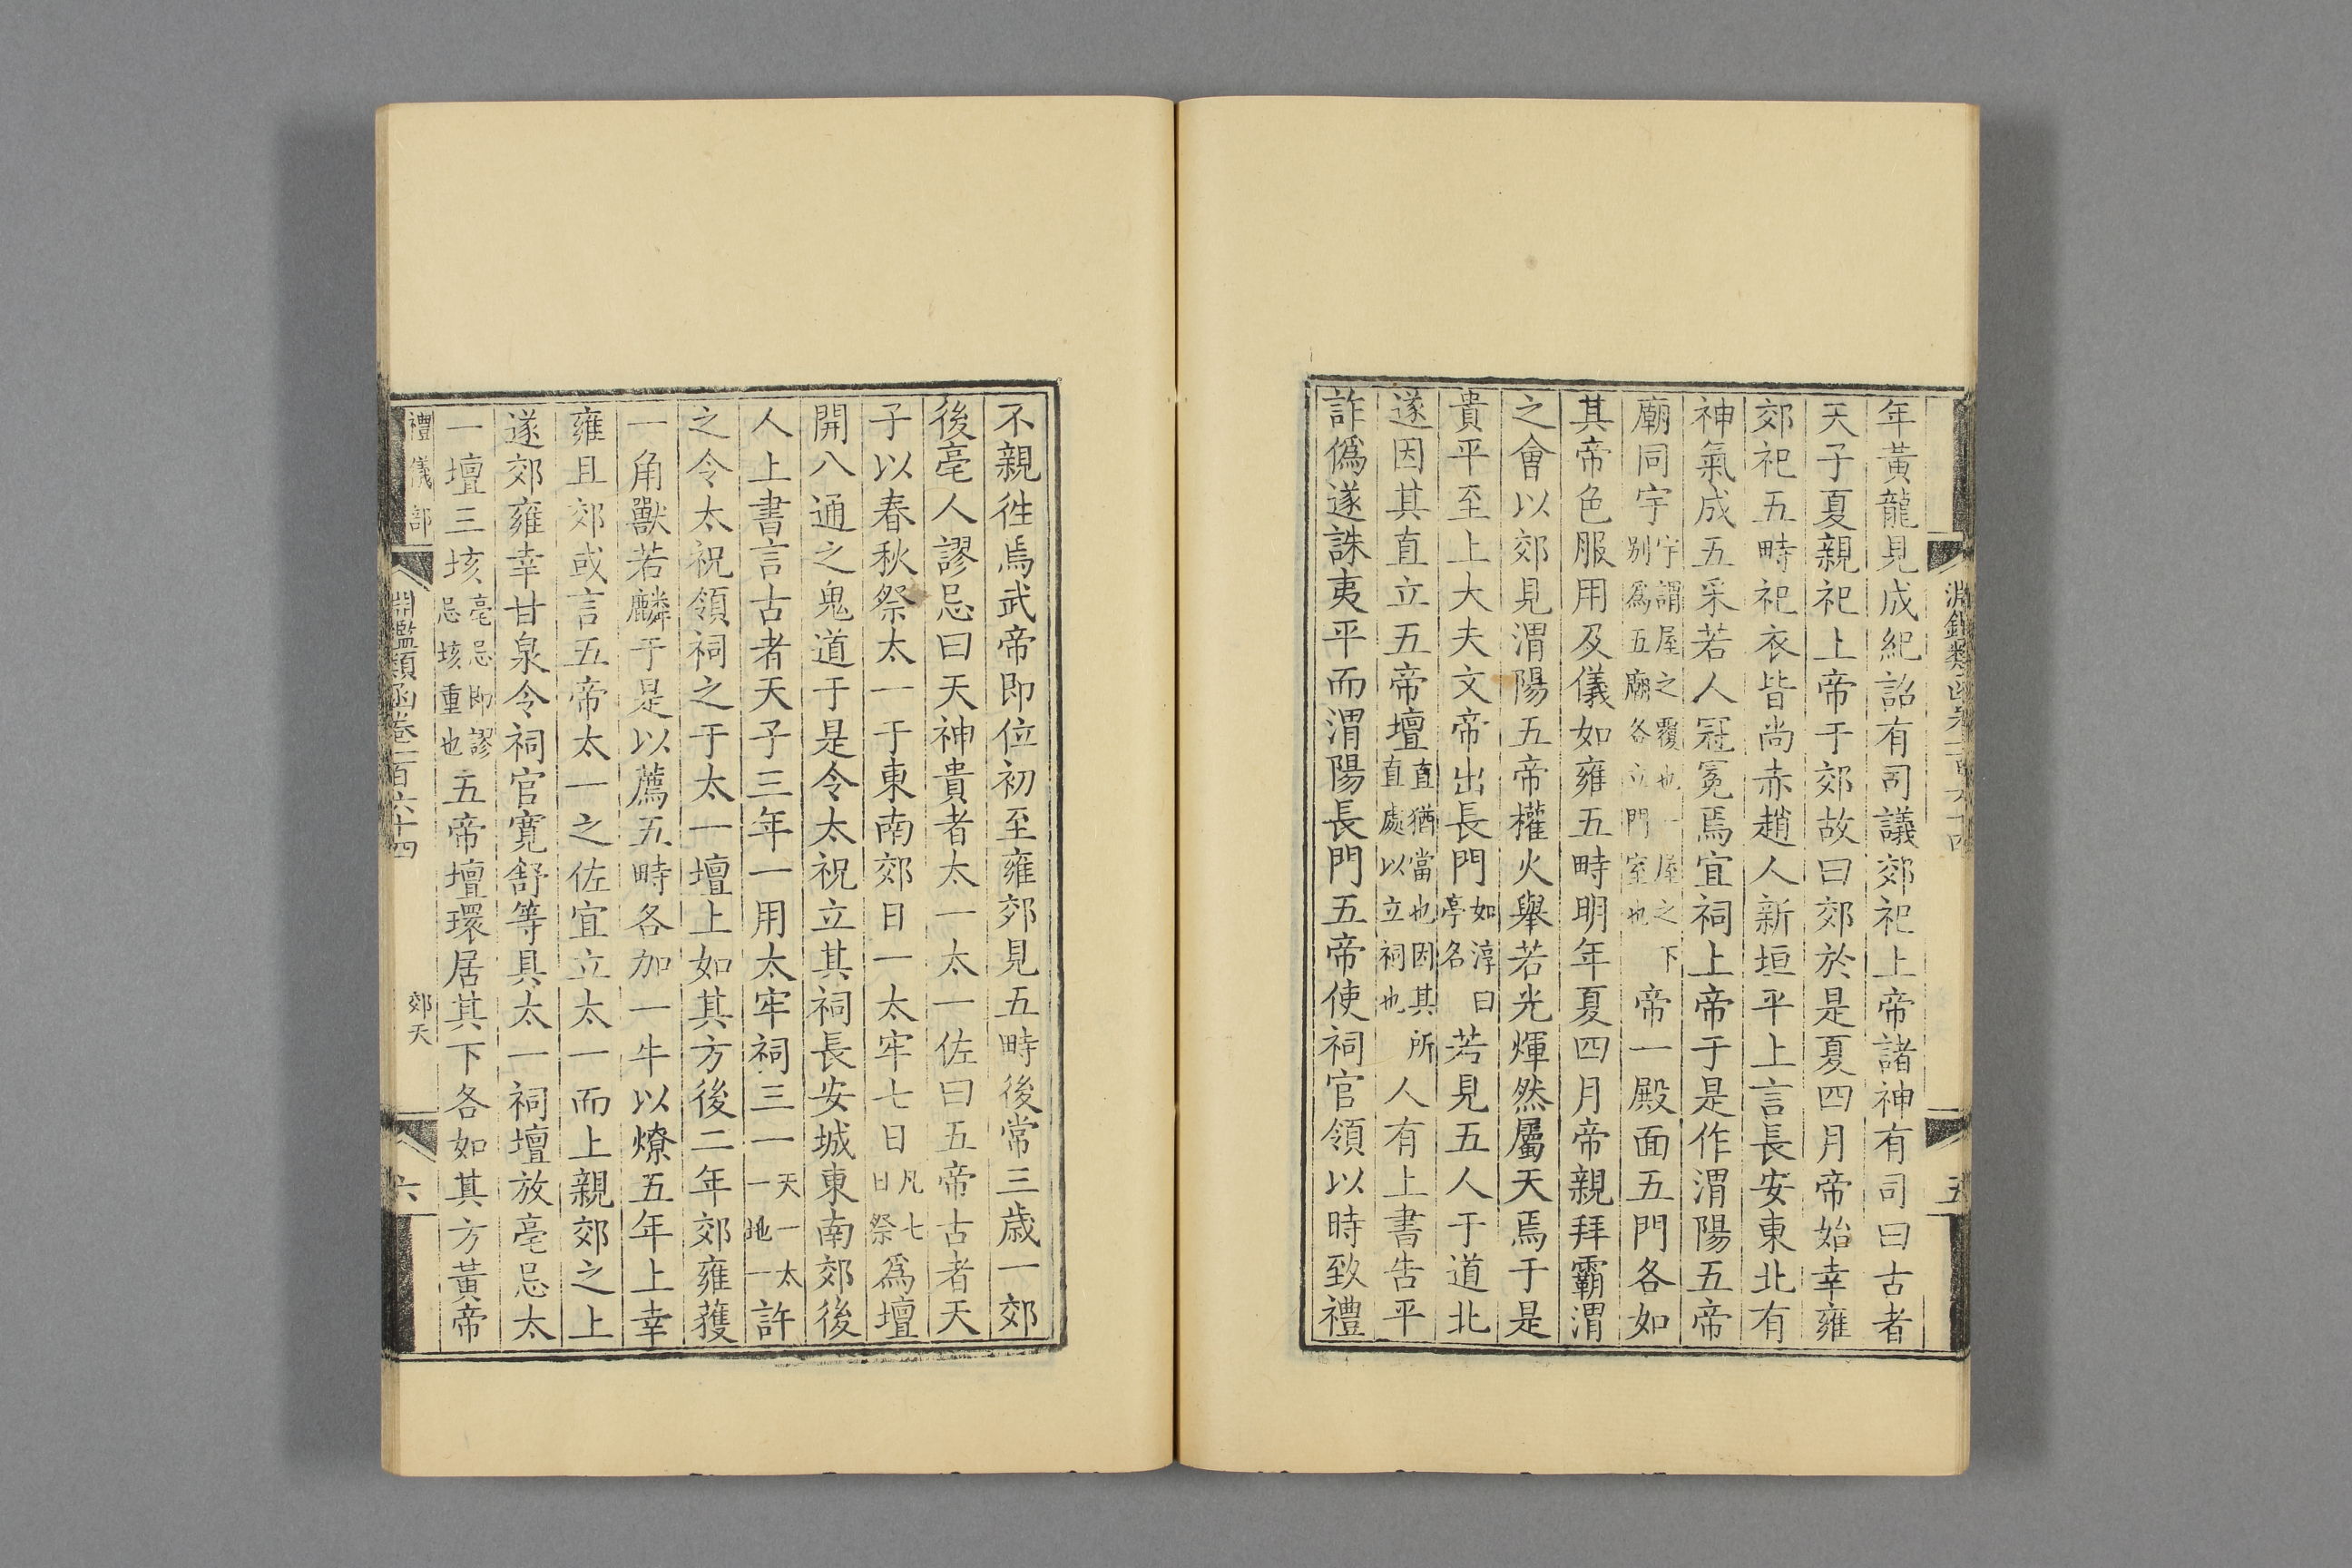 年黃龍見成紀詔有司議郊祀上帝諸神有司曰古者
天子夏親祀上帝于郊故曰郊於是夏四月帝始幸雍
郊祀五畤祀衣皆尚赤趙人新垣平上言長安東北有
神氣成五采若人冠冕焉宜祠上帝于是作渭陽五帝
廟同宇宇謂屋之覆也一屋之下别爲五廟各立門室也帝一殿面五門各如
其帝色服用及儀如雍五畤明年夏四月帝親拜霸渭
之會以郊見渭陽五帝權火舉若光煇然屬天焉于是
貴平至上大夫文帝出長門如淳曰亭名若見五人于道北
遂因其直立五帝壇直猶當也因其所直處以立祠也人有上書告平
詐僞遂誅夷平而渭陽長門五帝使祠官領以時致禮
不親徃焉武帝即位初至雍郊見五畤後常三歲一郊
後亳人謬忌曰天神貴者太一太一佐曰五帝古者天
子以春秋祭太一于東南郊日一太牢七日凡七日祭爲壇
開八通之鬼道于是令太祝立其祠長安城東南郊後
人上書言古者天子三年一用太牢祠三一天一太一地一許
之令太祝領祠之于太一壇上如其方後二年郊雍獲
一角獸若麟于是以薦五畤各加一牛以燎五年上幸
雍且郊或言五帝太一之佐宜立太一而上親郊之上
遂郊雍幸甘泉令祠官寛舒等具太一祠壇放亳忌太
一壇三垓亳忌即謬忌垓重也五帝壇環居其下各如其方黃帝
禮儀部 淵鑑類函卷一百六十四 郊天 六